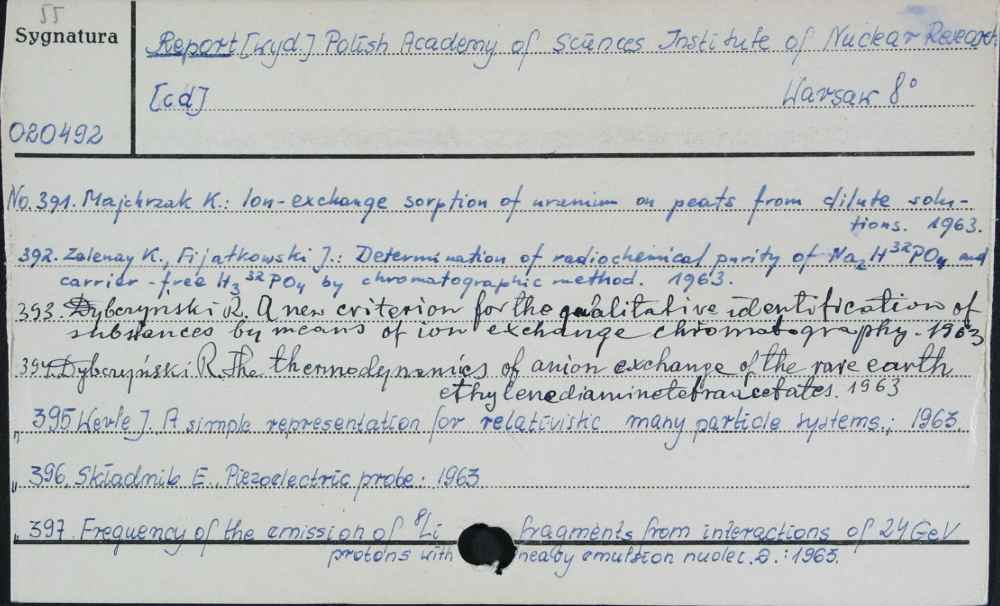 55
Sygnatura
Report [wyd.] Polish Academy of Sciences Institute of Nuclear Research
[cd] Warsaw 8°
020492
No. 391. Majchrzak K.: Ion-exchange sorption of uranium on peats from dilute solu-
tions. 1963.
392. Zalenay K., Fijałkowski J.: Determination of radiochemical purity of Na2H32PO4 and
carrier-free H3 32PO4 by chromatographic method. 1963.
393. Dybczynski R. A new criterion for the qualitative identification of
substances by means of ion exchange chromatography. 1963
394. Dybczyński R. The thermodynamics of anion exchange of the rare earth
ethylenediaminetetraacetates. 1963
" 395 Werle J. A simple representation for relativistic many particle systems.; 1963.
" 396. Składnik E. Piezoelectric probe: 1963
" 397. Frequency of the emission of 8Li fragments from interactions of 24 GeV
protons with heavy emulsion nuclei. : 1963.